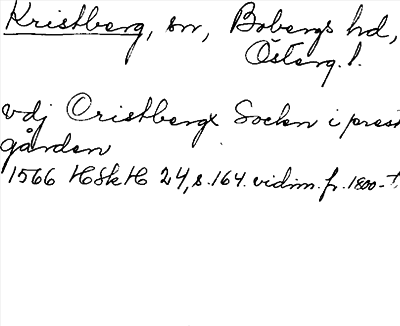 Kristberg, sn, Bobergs hd,
Österg. l.
vdj Cristbergx Sockn i prest
gården
1566 HSkH 24, s. 164. vidim. fr. 1800-t.